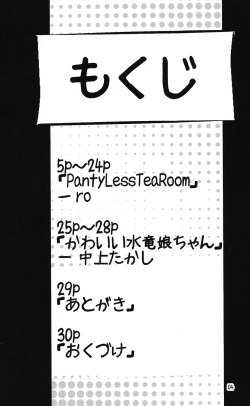 もくじ
5p～24p
『PantyLessTeaRoom』
ー ro
25p～28p
『かわいい水竜娘ちゃん』
ー 中上たかし
29p
『あとがき』
30p
『おくづけ』